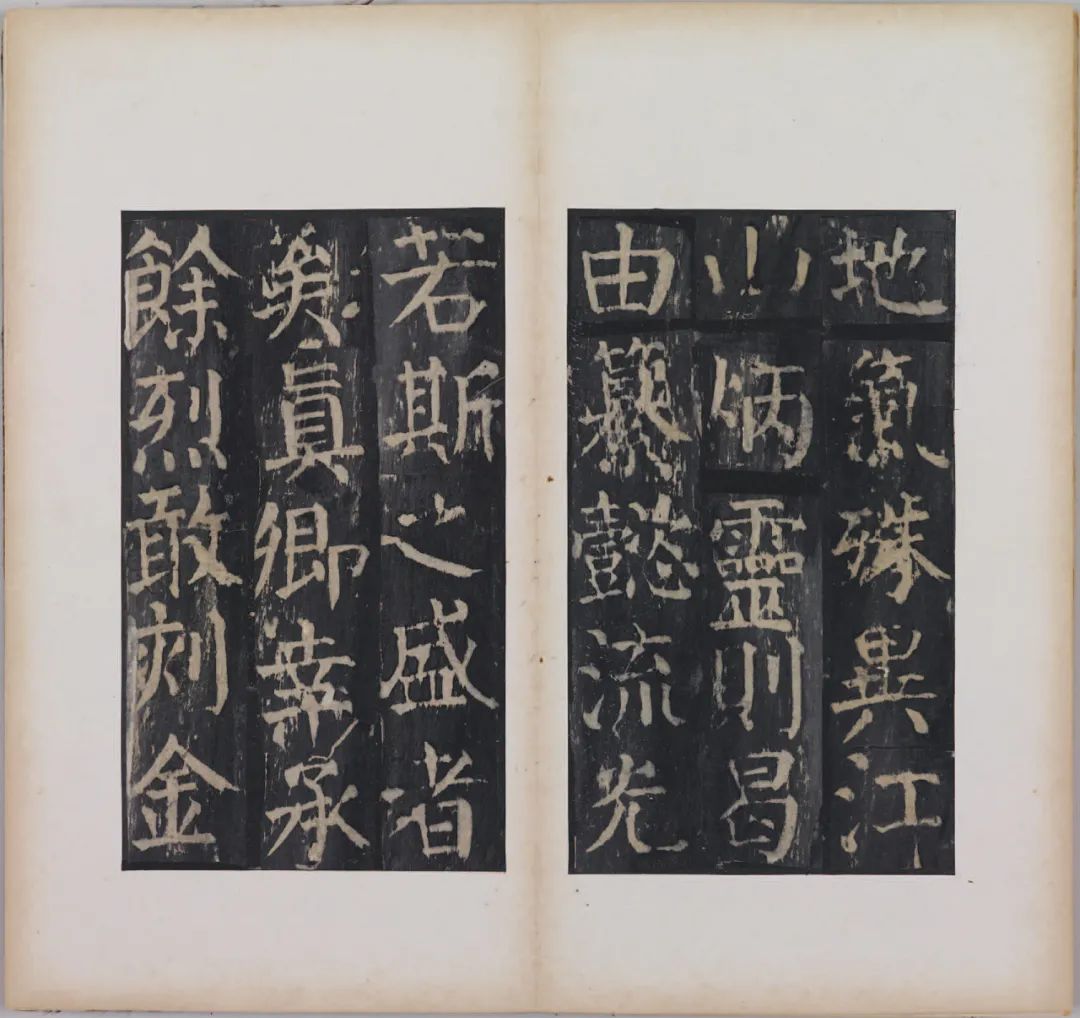 地氣殊異江
山炳靈則曷
由纂懿流光
若斯之盛者
矣眞卿幸承
餘烈敢刻金